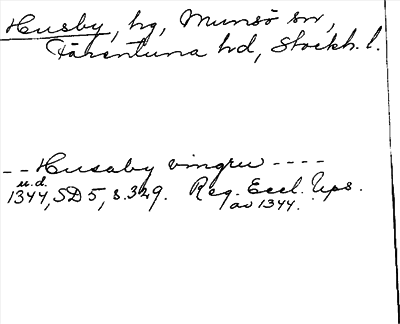 Husby, hg, Munsö sn,
Färentuna hd, Stockh. l.
-- Husaby vingru ----
u.d.
1344, SD 5, s. 329. Reg. Eccl. Ups.
av 1344.